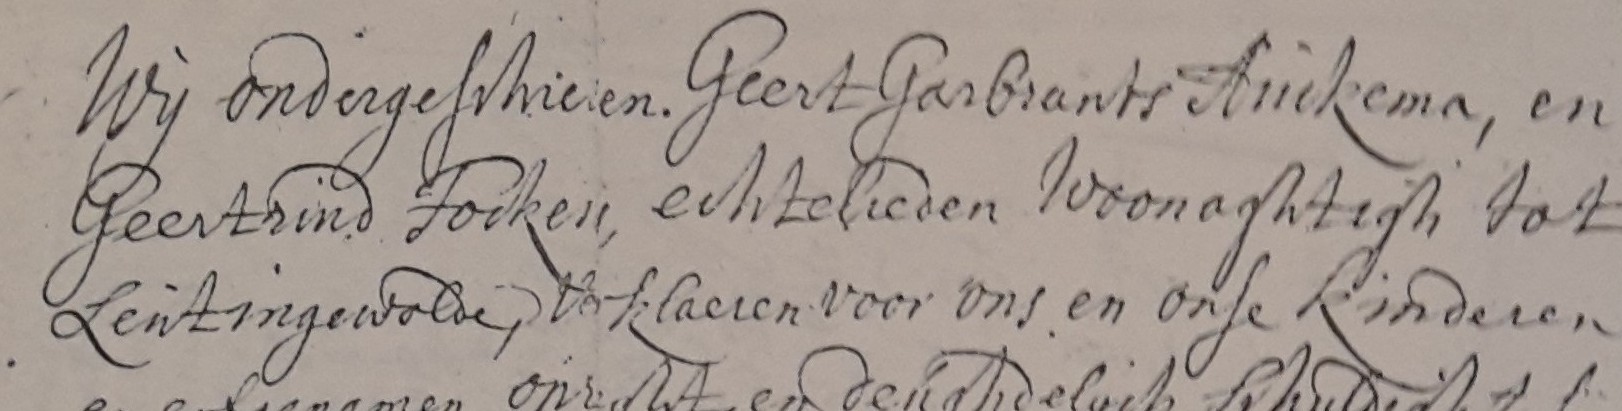 Wij ondergeschrieven. Geert Garbrants Auikema, en
Geertruid Focken, echtelieden Woonaghtigh tot
Leutingewolde, Verklaeren voor ons en onse kinderen
en erfgenamen oprecht en deughdelijck schuldigh te